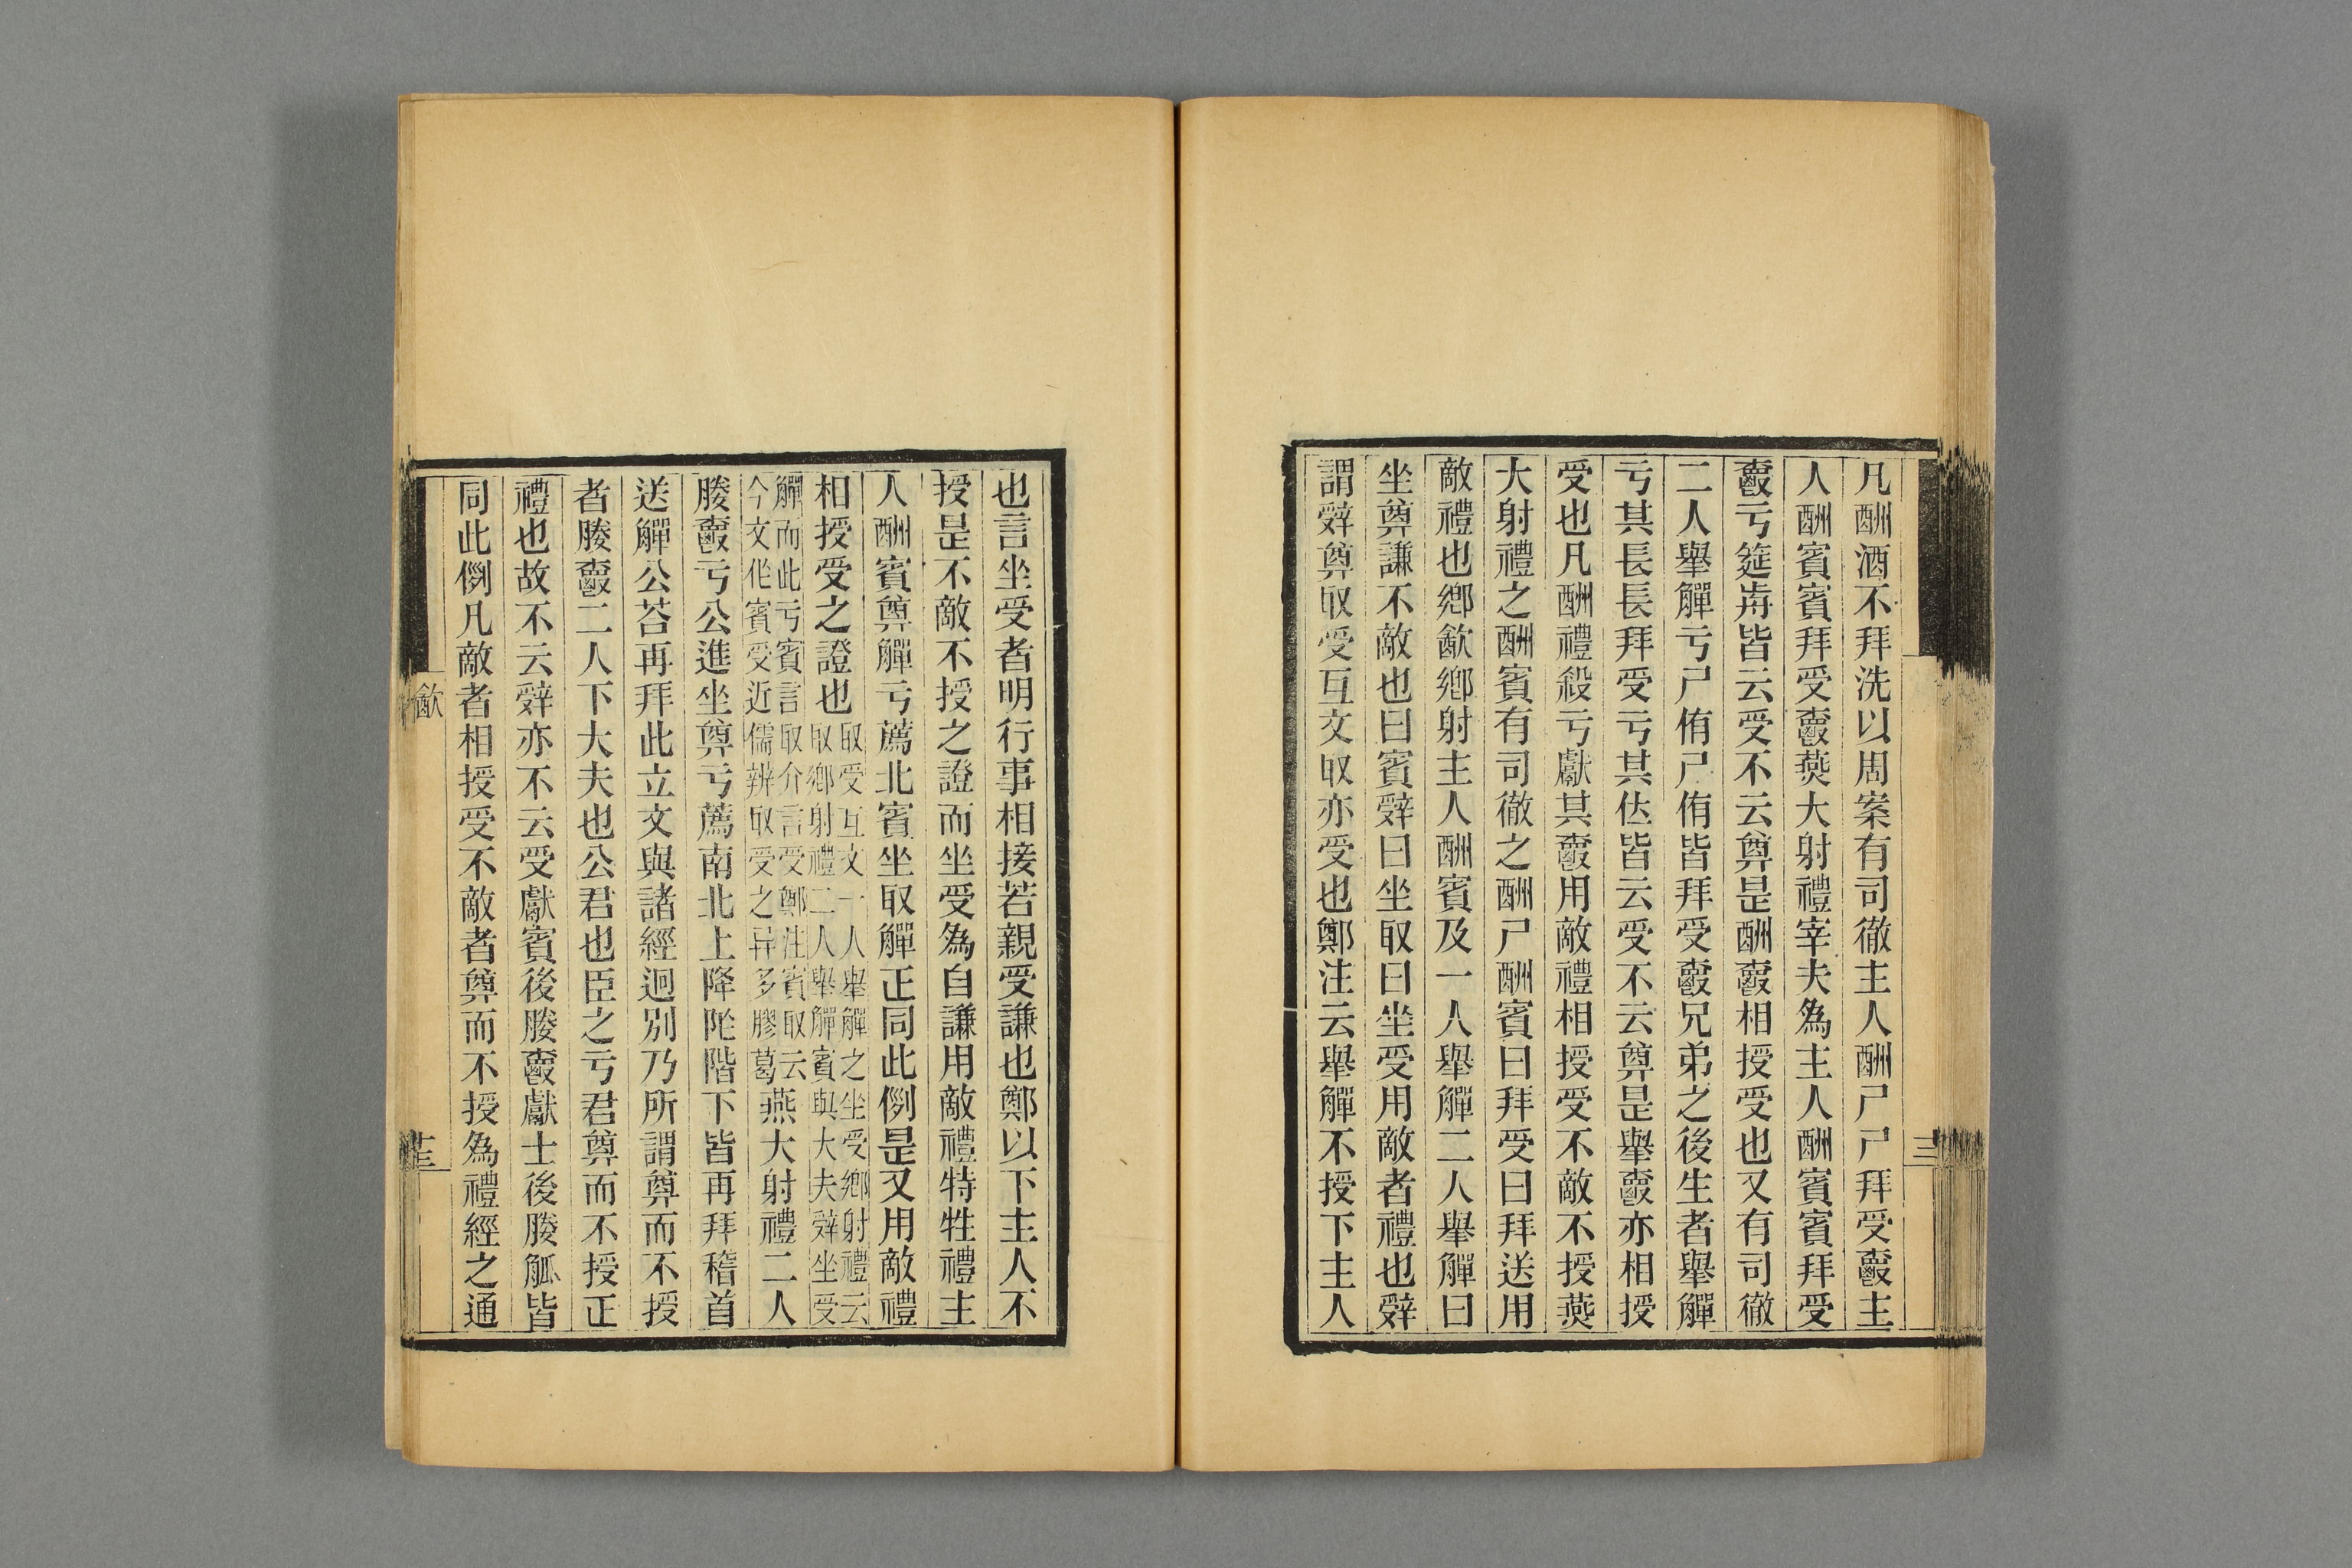 凡酬酒不拜洗以周案有司徹主人酬尸尸拜受爵主
人酬賓賓拜受爵燕大射禮宰夫為主人酬賓賓拜受
爵亏筵歬皆云受不云奠是酬爵相授受也又有司徹
二人舉觶亏尸侑尸侑皆拜受爵兄弟之後生者舉觶
亏其長長拜受亏其佐皆云受不云奠是舉爵亦相授
受也凡酬禮殺亏獻其爵用敵禮相授受不敵不授燕
大射禮之酬賓有司徹之酬尸酬賓曰拜受曰拜送用
敵禮也鄉飮鄉射主人酬賓及一人舉觶二人舉觶曰
坐奠謙不敵也曰賓辤曰坐取曰坐受用敵者禮也辤
謂辤奠取受互文取亦受也鄭注云舉觶不授下主人
三
也言坐受者明行事相接若親受謙也鄭以下主人不
授是不敵不授之證而坐受為自謙用敵禮特牲禮主
人酬賓奠觶亏薦北賓坐取觶正同此例是又用敵禮
相授受之證也取受互文一人舉觶之坐受鄉射禮云
取鄉射禮二人舉觶賓與大夫辤坐受
觶而此亏賓言取介言受鄭注賓取云
今文作賓受近儒辨取受之异多膠葛燕大射禮二人
媵爵亏公進坐奠亏薦南北上降阼階下皆再拜稽首
送觶公荅再拜此立文與諸經迥別乃所謂奠而不授
者媵爵二人下大夫也公君也臣之亏君奠而不授正
禮也故不云辤亦不云受獻賓後媵爵獻士後媵觚皆
同此例凡敵者相授受不敵者奠而不授為禮經之通
飮